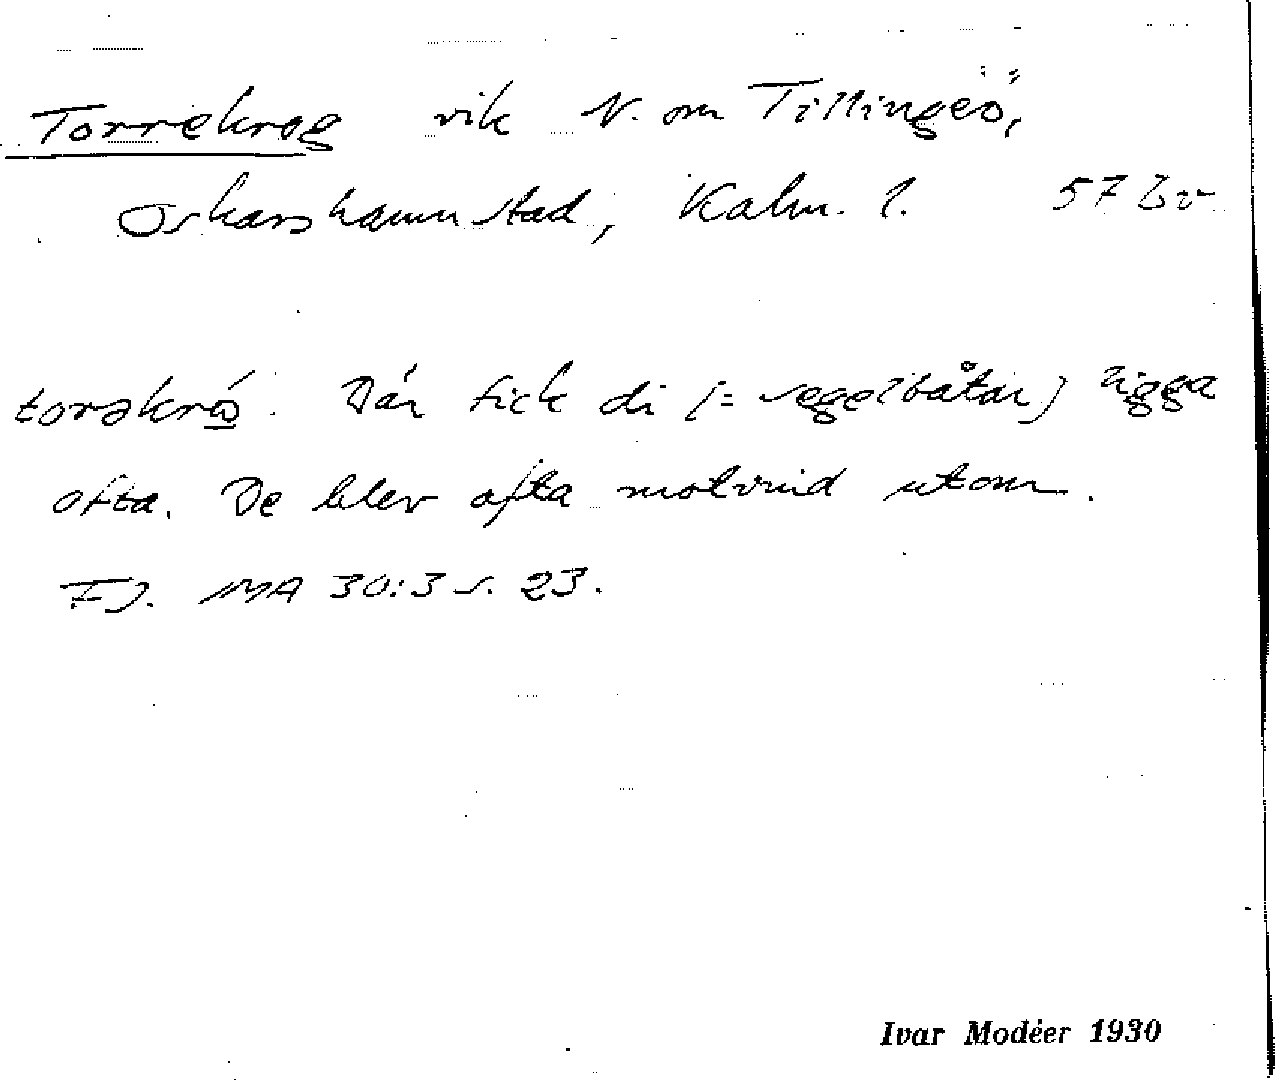 Torrekrog vik N. om Tillingeö,
Oskarshamn stad, Kalm. l. 57 Sv
torəkró. Där fick di (= segelbåtar) ligga
ofta. De blev ofta motvind utom.
FJ. IMA 30:3 s. 23.
Ivar Modéer 1930